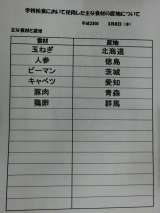 学校給食において使用した主な食材の産地について
平成23年 3月8日 (木)
主な食材と産地
食材 産地
玉ねぎ 北海道
人参 徳島
ピーマン 茨城
キャベツ 愛知
豚肉 青森
鶏卵 群馬